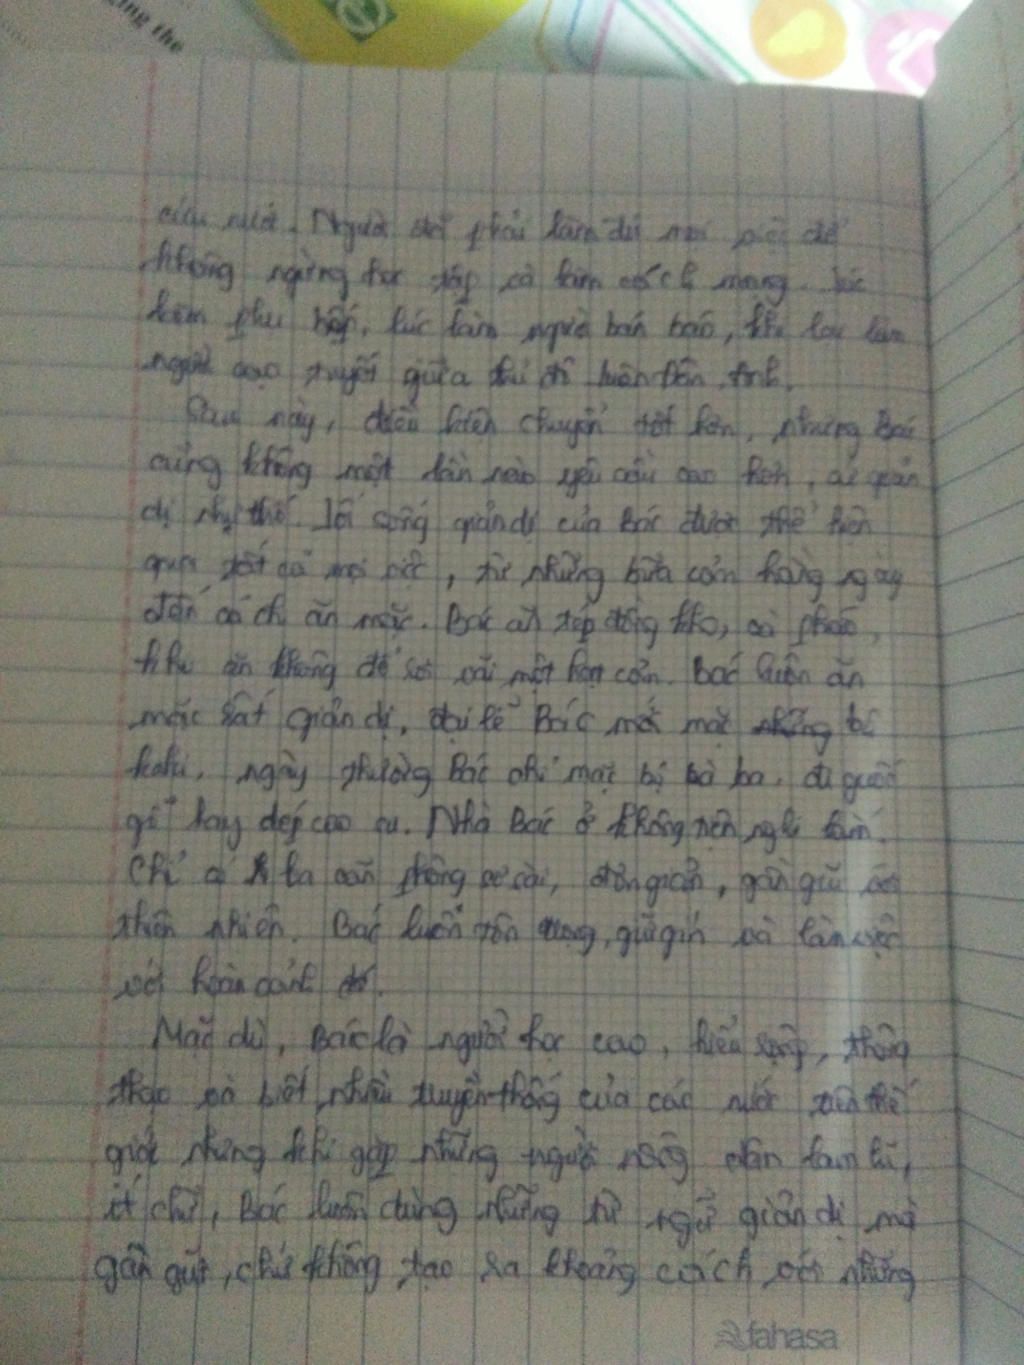 ing the
cứu nước. Người đã phải làm đủ mọi việc để
không ngừng học tập và làm cách mạng. lúc
làm phụ bếp, lúc làm người bán báo, khi lại làm
người cào tuyết giữa
Sau này, điều kiện chuyển tốt hơn, nhưng Bác
cũng không một lần nào yêu cầu cao hơn,
dị như thế. Lối sống giản dị của Bác được thể hiện
qua tất cả mọi việc, từ những bữa cơm hằng ngày
đến cách ăn mặc. Bác ăn tép đồng kho, cà pháo,
khi ăn không để rơi vãi một hạt cơm. Bác luôn ăn
mặc rất giản dị, đại lễ Bác mới mặc bộ
kaki, ngày thường Bác chỉ mặc bộ bà ba, đi guốc
gỗ hay dép cao su. Nhà Bác ở không tiện nghi lắm.
Chỉ có ba căn phòng sơ sài, đơn giản, gần gũi với
thiên nhiên. Bác luôn tôn trọng, giữ gìn và làm việc
với hoàn cảnh đó.
Mặc dù, Bác là người học cao, hiểu rộng, thông
thạo và biết nhiều truyền thống của các nước trên thế
giới nhưng khi gặp những người nông dân lam lũ,
ít chữ, Bác luôn dùng những từ ngữ giản dị mà
gần gũi, chứ không tạo ra khoảng cách với những
fahasa